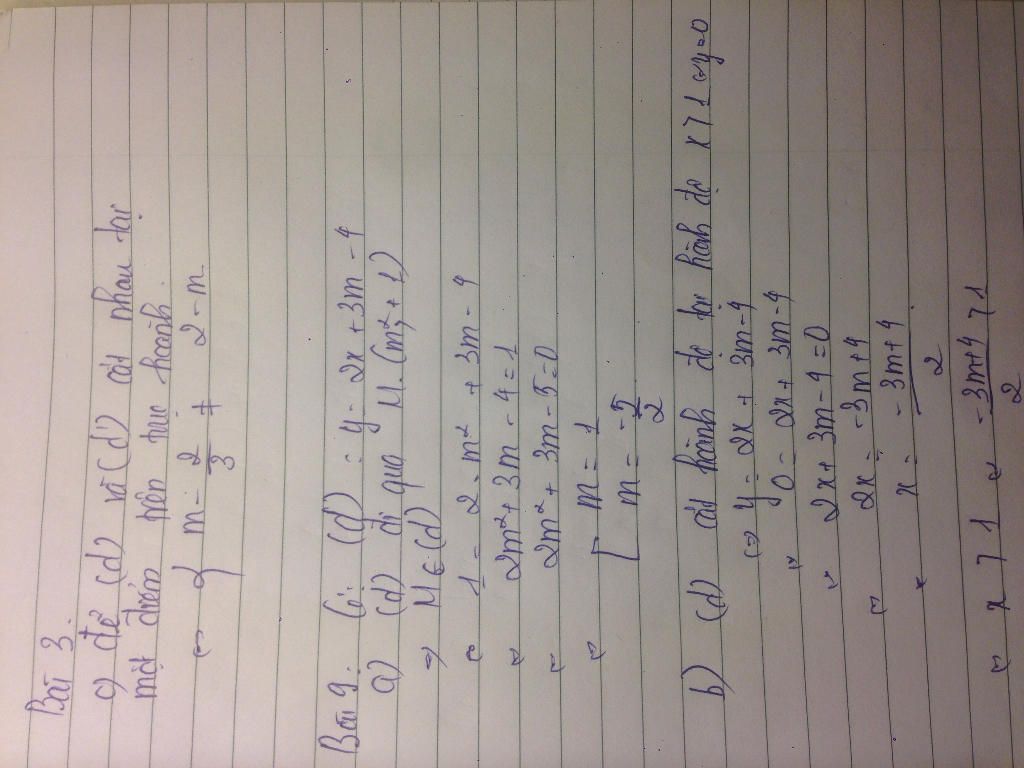 Bài 3.
c) để (d) và (d') cắt nhau tại
một điểm trên trục hoành.
{ m - 2/3 ≠ 2 - m
Bài 9: Có: (d) : y = 2x + 3m - 4
a) (d) đi qua M (m² + 1)
=> M ∈ (d)
<=> 1 = 2 . m² + 3m - 4
<=> 2m² + 3m - 4 = 1
<=> 2m² + 3m - 5 = 0
<=> [ m = 1
m = -5/2
b) (d) cắt hoành độ tại hành độ x > 1 => y = 0
<=> y = 2x + 3m - 4
<=> 0 = 2x + 3m - 4
<=> 2x + 3m - 4 = 0
<=> 2x = -3m + 4
<=> x = -3m + 4 / 2
<=> x > 1 <=> -3m + 4 / 2 > 1